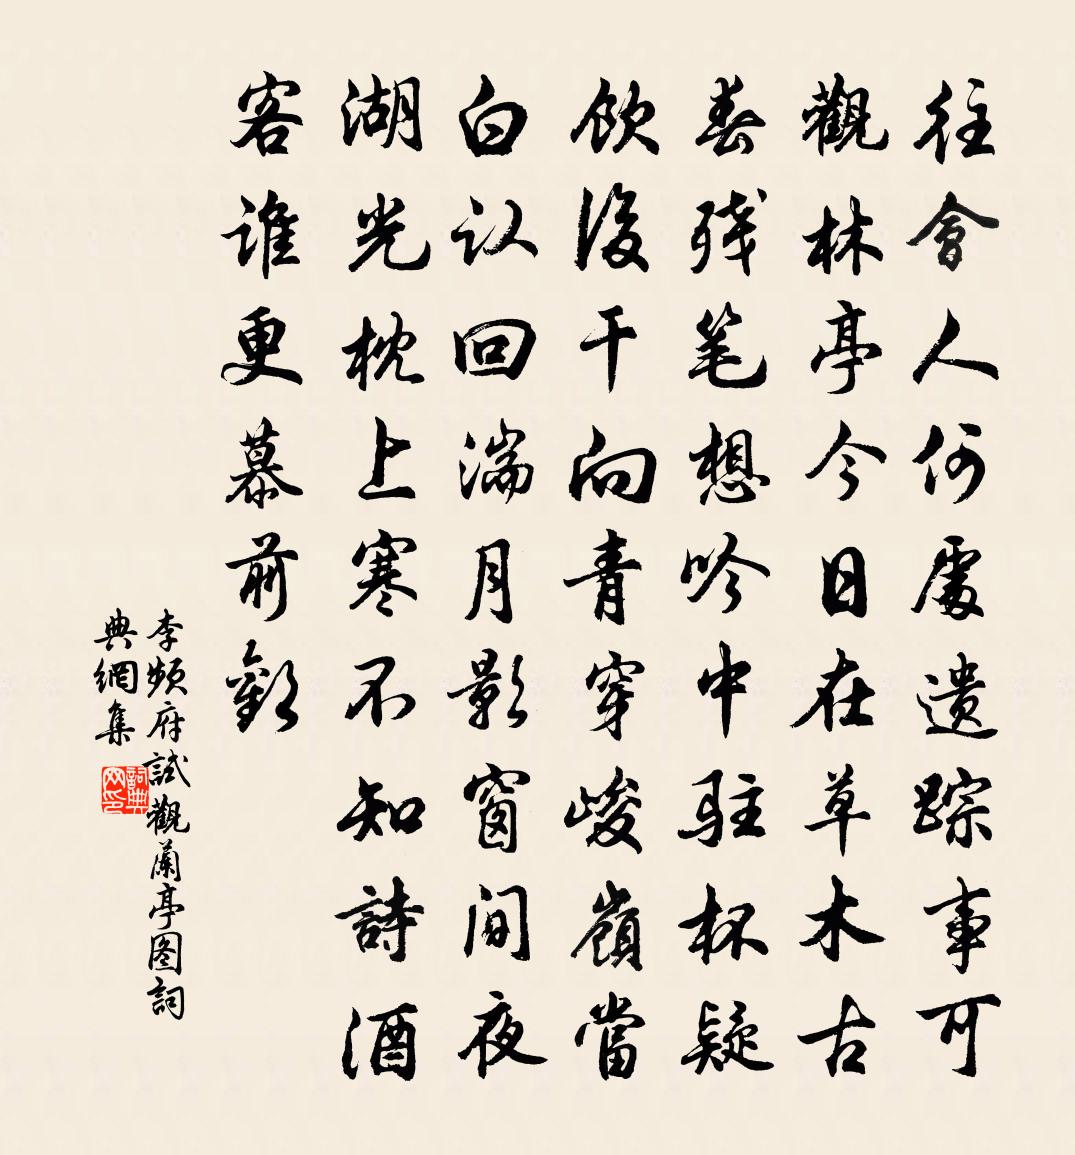 往會人何處遺踪事可
觀林亭今日在草木古
春残笔想吟中駐杯疑
飲後干向青穿峻嶺當
白认回湍月影窗间夜
湖光枕上寒不知詩酒
客谁更慕前歡
李频府試觀蘭亭图詞
典網集
詞典
网印